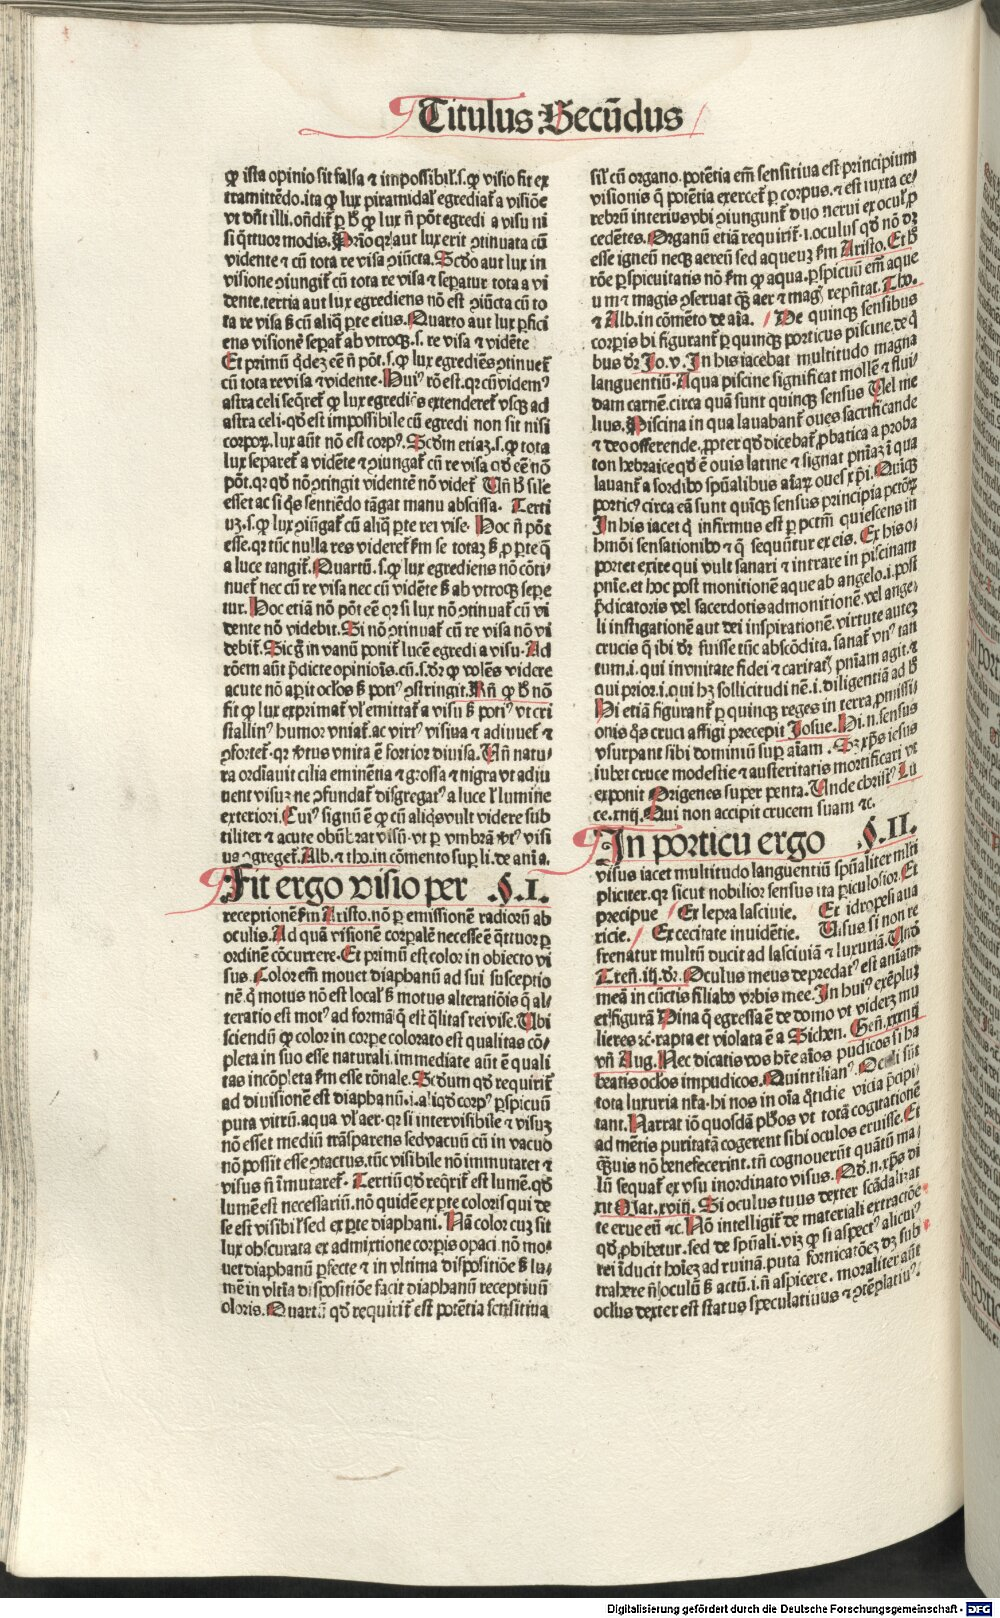 Titulus Secũdus
ꝙ ista opinio sit falsa ⁊ impossibiĺ.s.ꝙ visio fit ex
tramittẽdo.ita ꝙ lux piramidaĺ egrediaẗ a visiõe
vt dñt illi.oñdiẗ ꝑ ħ ꝙ lux ñ põt egredi a visu ni
si q̈ttuor modis.Prĩo qꝛ aut lux erit ꝯtinuata cũ
vidente ⁊ cũ tota re visa ꝯiũcta.Scďo aut lux in
visione ꝯiungiẗ cũ tota re visa ⁊ sepaẗur tota a vi
dente.tertia aut lux egrediens nõ est ꝯiũcta cũ to
ta re visa ß cũ aliq̃ ꝑte eius.Quarto aut lux ꝑfici
ens visionẽ separaẗ ab vtroqꝫ.s.re visa ⁊ vidẽte
Et primũ q̈dez eẽ ñ põt.s.ꝙ lux egrediẽs ꝯtinueẗ
cũ tota re visa ⁊ vidente.Huiꝰ rõ est.qꝛ cũ videmꝰ
astra celi seq̃reẗ ꝙ lux egrediẽs extendereẗ vsqꝫ ad
astra celi.qď est impossibile cũ egredi non sit nisi
corpoꝝ.lux aũt nõ est corpꝰ.Scďm etiaz.s.ꝙ tota
lux separeẗ a vidẽte ⁊ ꝯiungaẗ cũ re visa qď eẽ nõ
põt.qꝛ qď nõ ꝯtingit videntẽ nõ videẗ Uñ ħ sile
esset ac si q̃s sentiẽdo tãgat manu abscissa. Terti
uz.s.ꝙ lux ꝯiũgaẗ cũ aliq̃ ꝑte rei vise.Hoc ñ põt
esse.qꝛ tũc nulla res videreẗ ẜm se totaz ß ꝓ ꝑte q̃
a luce tangiẗ.Quartũ.s.ꝙ lux egrediens nõ cõti-
nueẗ nec cũ re visa nec cũ vidẽte ß ab vtroqꝫ sepe
tur.Hoc etiã nõ põt eẽ qꝛ si lux nõ ꝯtinuaẗ cũ vi
dente nõ videbit.Si nõ ꝯtinuaẗ cũ re visa nõ vi
debiẗ.Sic g̃ in vanũ poniẗ lucẽ egredi a visu.Ad
rõem aũt p̃dicte opiniõis.cũ.s.dꝛ ꝙ volẽs videre
acute nõ aꝑit ocĺos ß potiꝰ ꝯstringit.Rñ ꝙ ħ nõ
fit ꝙ lux exprimaẗ vĺ emittaẗ a visu ß potiꝰ vt cri
stallinꝰ humor vniaẗ.ac virtꝰ visiua ⁊ adiuueẗ ⁊
ꝯforteẗ.qꝛ v̈tus vnita ẽ fortior diuisa.Uñ natu-
ra ordiauit cilia eminẽtia ⁊ grossa ⁊ nigra vt adiu
uent visuz ne ꝯfundaẗ disgregatꝰ a luce ľ lumine
exteriori.Cuiꝰ signũ ẽ ꝙ cũ aliq̃s vult videre sub
tiliter ⁊ acute obũbrat visũ.vt ꝑ vmbrã v̈tꝰ visi
ua ꝯgregeẗ.Alb.⁊ tho.in cõmento suꝑ li.de anĩa.
Fit ergo visio per .§.I.
receptionẽ ẜm Aristo.nõ ꝑ emissionẽ radiorũ ab
oculis.Ad quã visionẽ corꝑalẽ necesse ẽ q̈ttuor ꝑ
ordinẽ cõcurrere.Et primũ est color in obiecto vi
sus.Colorem̃ mouet diaphanũ ad sui susceptio
nẽ.q̃ motus nõ est locaĺ ß motus alteratiõis q̃ al-
teratio est motꝰ ad formã q̃ est q̃litas rei vise.Ubi
sciendũ ꝙ color in corꝑe colorato est qualitas cõ-
pleta in suo esse naturali.immediate aũt ẽ quali
tas incõpleta ẜm esse rõnale.Scďum qď requiriẗ
ad diuisionẽ est diaphanũ.i.aliqď corpꝰ ꝑspicuũ
puta vitrũ.aqua vľ aer.qꝛ si inter visibile ⁊ visuz
nõ esset mediũ trãsparens sed vacuũ cũ in vacuo
nõ possit esse ꝯtactus.tũc visibile nõ immutaret ⁊
visus ñ ĩmutareẗ.Tertiũ qď req̃riẗ est lumẽ.qď
lumẽ est necessariũ.nõ quidẽ ex ꝑte coloris qui de
se est visibiĺ sed ex ꝑte diaphani.Nã color cuz sit
lux obscurata ex admixtione corꝑis opaci nõ mo-
uet diaphanũ ꝑfecte ⁊ in vltima dispositiõe ß lu-
mẽ in vltĩa dispositiõe facit diaphanũ receptiuũ
oloris.Quartũ qď requiriẗ est potẽtia sensitiua
siĺ cũ organo.potẽtia em̃ sensitiua est principium
visionis q̃ potẽtia exerceẗ ꝑ corpus.⁊ est iuxta ce-
rebrũ interius vbi ꝯiunguntẗ duo nerui ex oculꝭ ꝓ
cedẽtes.Organũ etiã requiriẗ.i.oculus qď nõ dꝛ
esse igneũ necqꝫ aereũ sed aqueuz ẜm Aristo.Et ħ
rõe ꝑspicuitatis nõ ẜm ꝙ aqua.ꝑspicuũ em̃ aque
u m ⁊ magis ꝯseruat qꝫ aer ⁊ magꝭ repñtat.Tho.
⁊ Alb.in cõmẽto de aĩa. De quinqꝫ sensibus
corꝑis hi figuranẗ ꝑ quinqꝫ porticus piscine.de q̃
bus dꝛ Jo.v.In his iacebat multitudo magna
languentiũ.Aqua piscine significat mollẽ ⁊ flui/
dam carnẽ.circa quã sunt quinqꝫ sensus Uel me
lius.Piscina in qua lauabanẗ oues sacrificande
⁊ deo offerende.ꝓpter qď dicebaẗ ꝓbatica a proba
ton hebraice qď ẽ ouis latine ⁊ signat pñiaz ĩ qua
lauanẗ a sordibꝰ spũalibus aĩaꝝ oues xp̃i.Quĩqꝫ
porticꝰ circa eã sunt quĩqꝫ sensus principia pctõꝝ
In his iacet q̃ infirmus est ꝑ pctm̃ quiescens in
hmõi sensationibꝰ ⁊ q̃ sequũtur ex eis.Ex his o-
portet exire qui vult sanari ⁊ intrare in piscinam
pnĩe.et hoc post monitionẽ aque ab angelo.i.post
p̃dicatoris vel sacerdotis admonitionẽ.vel ange-
li instigationẽ aut dei inspirationẽ.virtute autez
crucis q̃ ibi dꝛ fuisse tũc abscõdita.sanaẗ vnꝰ tan
tum.i.qui invnitate fidei ⁊ caritatꝭ pnĩam agit.⁊
qui prior.i.qui hꝫ sollicitudinẽ.i.diligentiã ad ħ
Hi etiã figuranẗ ꝑ quinqꝫ reges in terra ꝓmissi-
onis q̃s cruci affigi precepit Josue.Hi.n.sensus
vsurpant sibi dominiũ suꝑ aĩam.Sꝫ xp̃s iesus
iubet cruce modestie ⁊ austeritatis mortificari vt
exponit Origenes super penta.Unde christꝰ Lu
ce.xiiij.Qui non accipit crucem suam ⁊c.
In porticu ergo .§.II.
visus iacet multitudo languentiũ spũaliter mľti
pliciter.qꝛ sicut nobilior sensus ita ꝑiculosior.Et
precipue Ex lepra lasciuie. Et idropesi aua
ricie. Ex cecitate inuidẽtie. Uisus si non re
frenatur multũ ducit ad lasciuiã ⁊ luxuriã.Unď
Treñ.iij.dꝛ.Oculus meus depredatꝰ est aniam
meã in cũctis filiabꝰ vrbis mee.In huiꝰ exẽpluz
et figurã Dina q̃ egressa ẽ de domo vt videret mu
lieres ⁊c.rapta et violata ẽ a Sichen. Geñ.xxxiiij
vñ Aug.Nec dicatis vos hr̃e aĩos pudicos si ha
beatis ocĺos impudicos.Quintilianꝰ Oculi sũt
tota luxuria nr̃a.hi nos in oĩa q̃tidie vicia p̃cipi-
tant.Narrat iõ quosdã pħos vt totã cogitationẽ
ad mẽtis puritatã cogerent sibi oculos eruisse.Et
qꝫuis nõ benefecerint.tñ cognouerũt quãtũ ma-
lũ sequaẗ ex vsu inordinato visus.Qď.n.xp̃s di
xit Mat.xviij.Si oculus tuus dexter scãdalizat
te erue eum ⁊c.Nõ intelligiẗ de materiali extractõe
qď ꝓhibetur.sed de spũali.viz ꝙ si aspectꝰ alicuiꝰ
rei ĩducit hoĩez ad ruinã.puta fornicatõez dꝫ sub
trahere ñ oculũ ß actũ.i.ñ aspicere.moraliter aũt
ocĺus dexter est status speculatiuus ⁊ ꝯtẽplatiuꝰ.
Digitalisierung gefördert durch die Deutsche Forschungsgemeinschaft - DFG